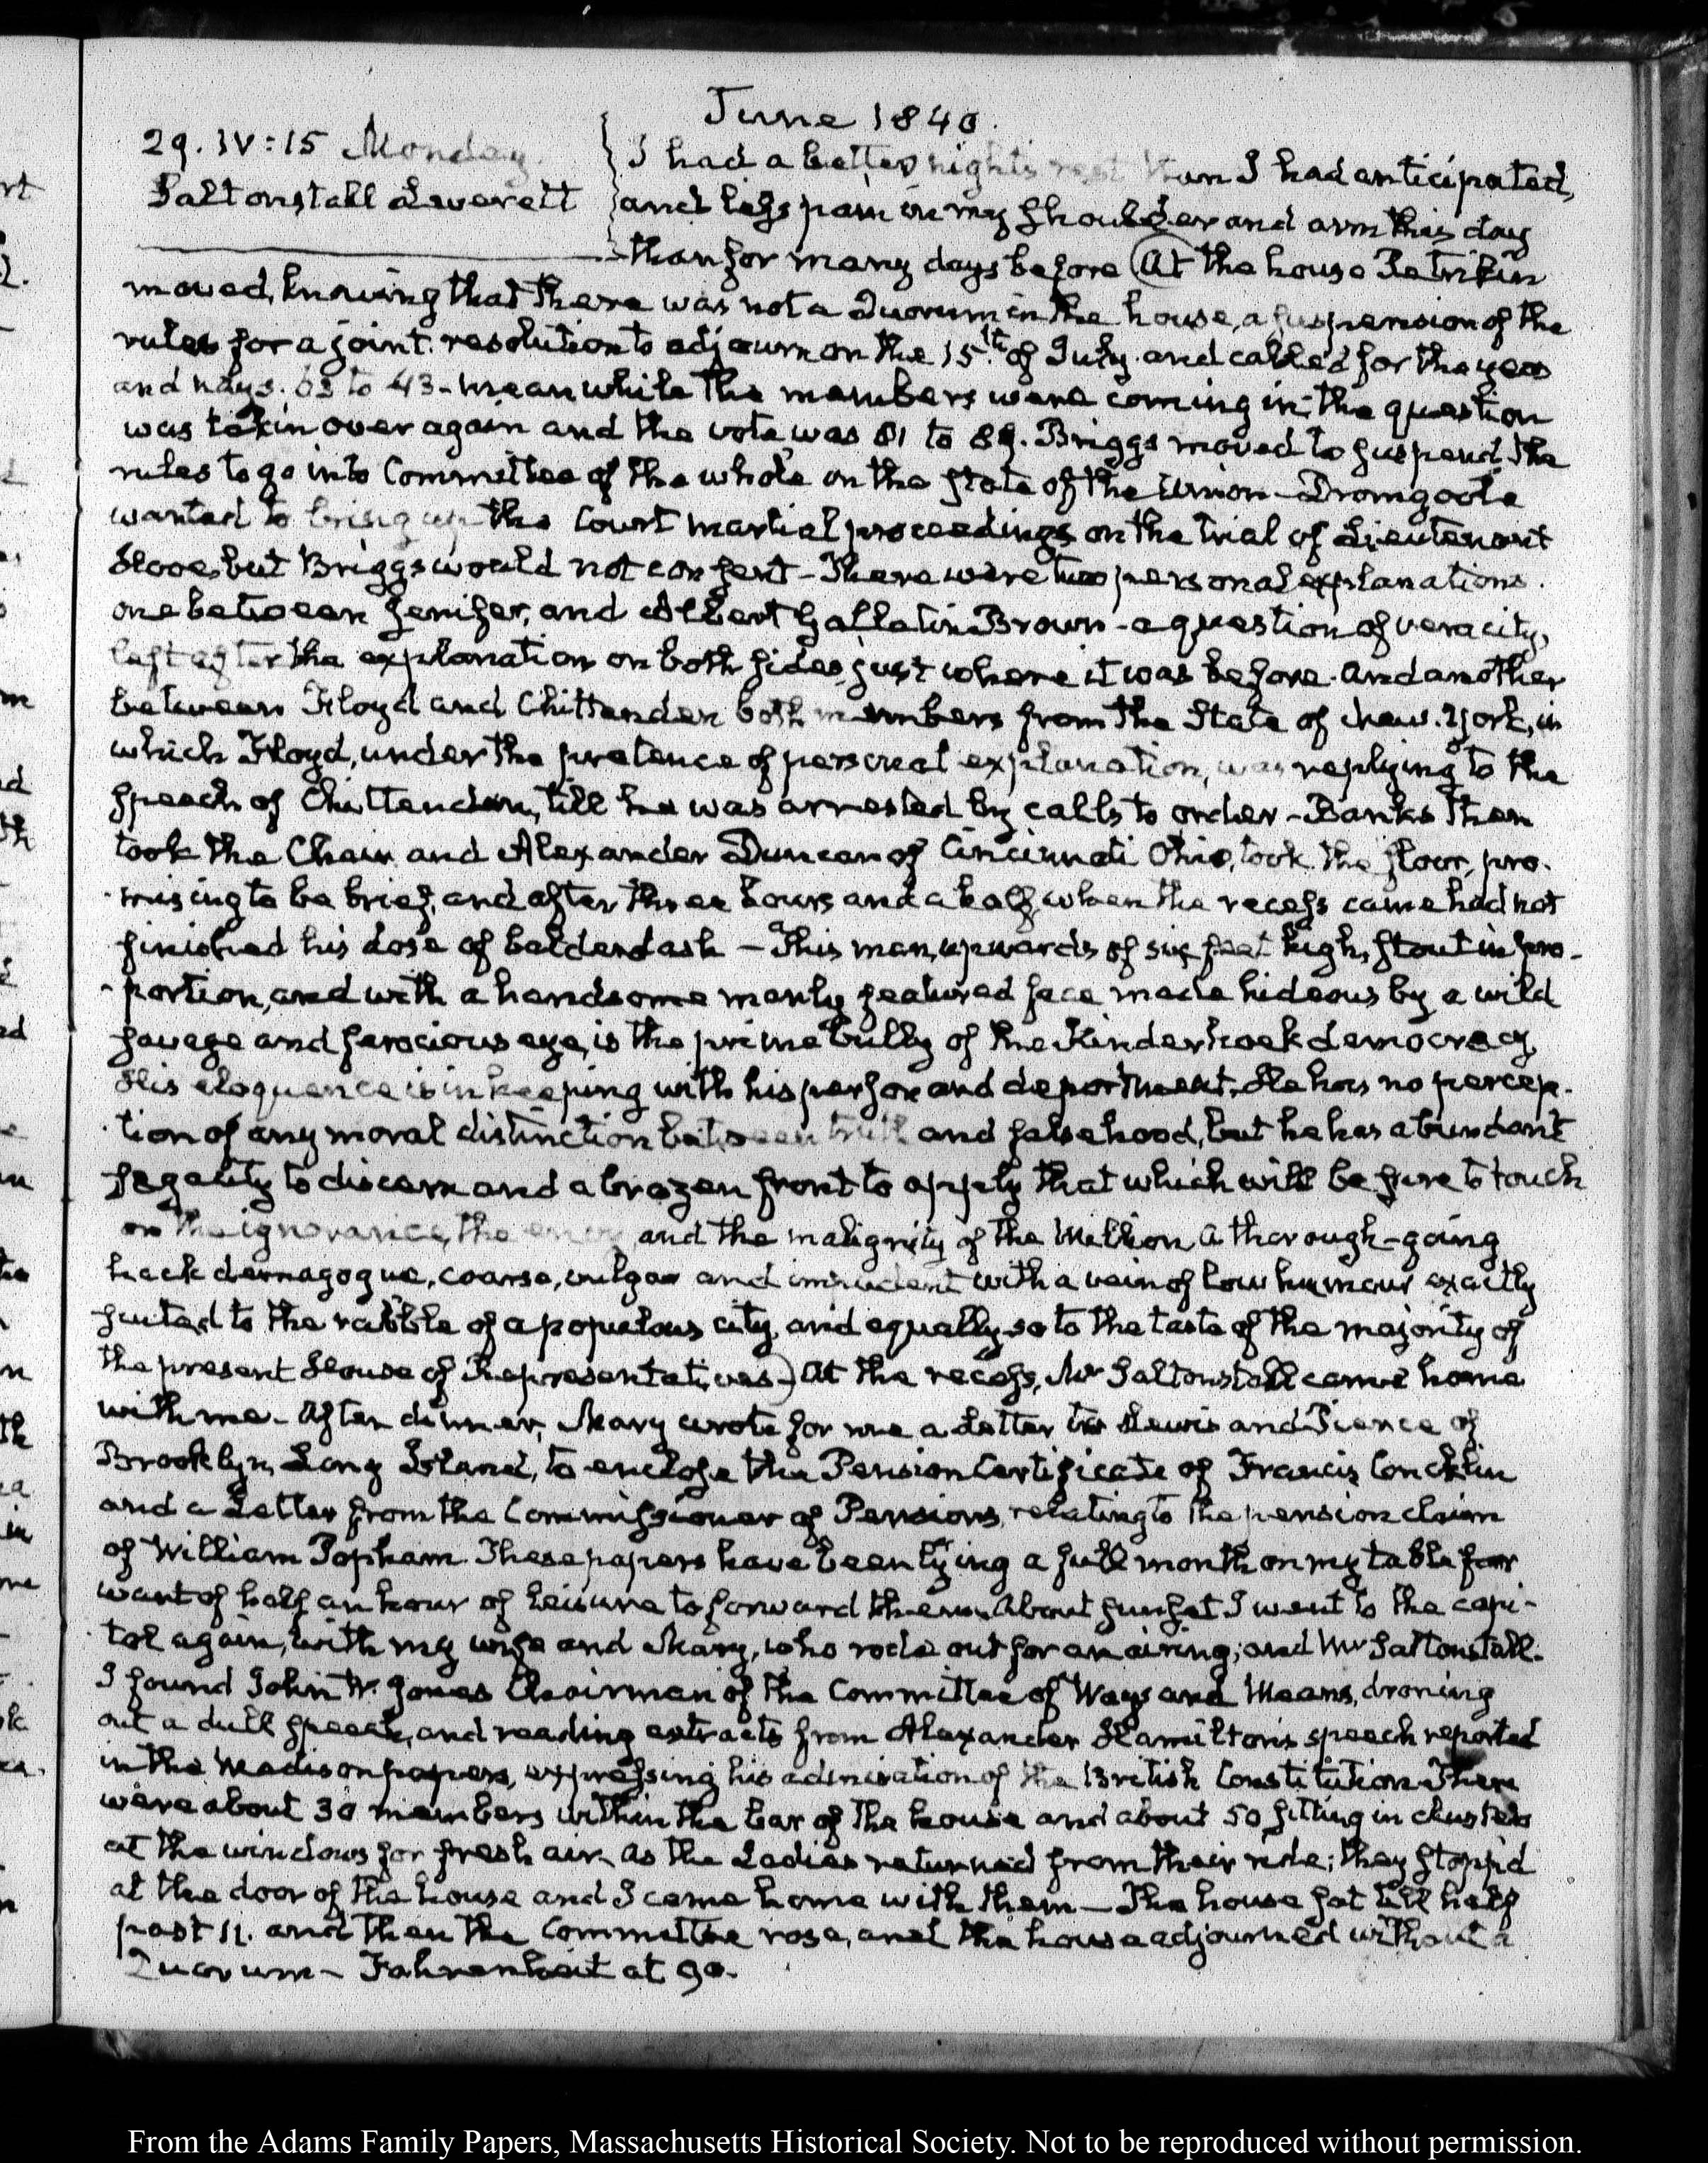 June 1840.
29. IV:15 Monday.
Saltonstall Leverett
I had a better nights rest than I had anticipated,
and less pain in my shoulder and arm this day
than for many days before (At the house Petrikin
moved, knowing that there was not a Quorum in the house, a suspension of the
rules for a joint resolution to adjourn on the 15th. of July. and called for the yeas
and nays. 63 to 43 - meanwhile the members were coming in: the question
was taken over again and the vote was 81 to 89. Briggs moved to suspend the
rules to go into Committee of the whole on the state of the Union - Dromgoole
wanted to bring up the Court martial proceedings on the trial of Lieutenant
Hooe, but Briggs would not consent - There were two personal explanations.
one between Jenifer, and Albert Gallatin Brown - a question of veracity,
left after the explanation on both sides, just where it was before. and another
between Floyd and Chittenden both members from the State of New. York, in
which Floyd, under the pretence of personal explanation, was replying to the
speech of Chittenden, till he was arrested by calls to order - Banks then
took the Chair, and Alexander Duncan of Cincinnati Ohio, took the floor, pro-
mising to be brief, and after three hours and a half, when the recess came had not
finished his dose of balderdash - This man, upwards of six feet high, stout in pro-
portion, and with a handsome manly featured face made hideous by a wild
savage and ferocious eye, is the prime bully of the Kinderhook democracy.
His eloquence is in keeping with his person and deportment. He has no percep-
tion of any moral distinction between truth and falsehood, but he has abundant
sagacity to discern and a brazen front to apply that which will be sure to touch
on the ignorance, the envy, and the malignity of the Million. A thorough-going
hack demagogue, coarse, vulgar and impudent with a vein of low humour exactly
suited to the rabble of a populous city, and equally so to the taste of the majority of
the present House of Representatives.) At the recess, Mr Saltonstall came home
with me. After dinner, Mary wrote for me a Letter to Lewis and Pierce of
Brooklyn, Long Island, to enclose the Pension Certificate of Francis Concklin
and a Letter from the Commissioner of Pensions, relating to the pension claim
of William Popham. These papers have been lying a full month on my table for
want of half an hour of leisure to forward them. About sunset I went to the capi-
tol again, with my wife and Mary, who rode out for an airing; and Mr Saltonstall.
I found John W. Jones Chairman of the Committee of Ways and Means, droning
out a dull speech, and reading extracts from Alexander Hamilton's speech reported
in the Madison papers, expressing his admiration of the British Constitution. There
were about 30 members within the bar of the house and about 50 sitting in clusters
at the windows for fresh air. As the Ladies returned from their ride; they stopp'd
at the door of the house and I came home with them - The house sat till half
past 11. and then the Committee rose, and the house adjourned without a
Quorum - Fahrenheit at 90.
From the Adams Family Papers, Massachusetts Historical Society. Not to be reproduced without permission.